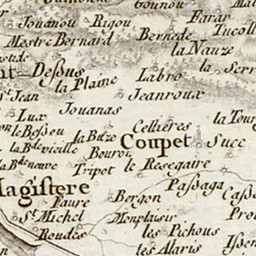 Gounou
Jouanou Rigou Farar
Mestre Bernard Bernede Tucoll
la Nauze
Dessus Labro la Serr
la Plaine
St Jean Jeanroux
Lux Jouanas la Tour
le Bessou la Buze Cellieres
la Bde vieille Bourou Coupet Succ
la Bde neuve Tripot le Resegaire
Magistere Passaga
Faure Bergon Casse
St Michel Monplaisir Pro
Boudes les Pichous
les Alaris Issen